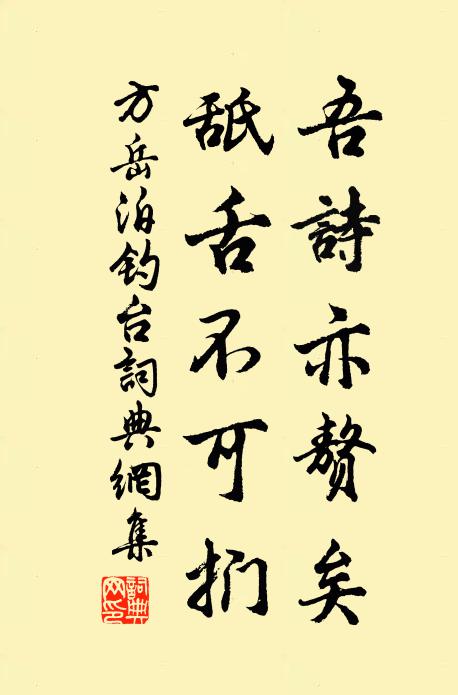 吾詩亦贅矣
舐舌不可捫
方岳泊釣台詞典網集
詞典網印